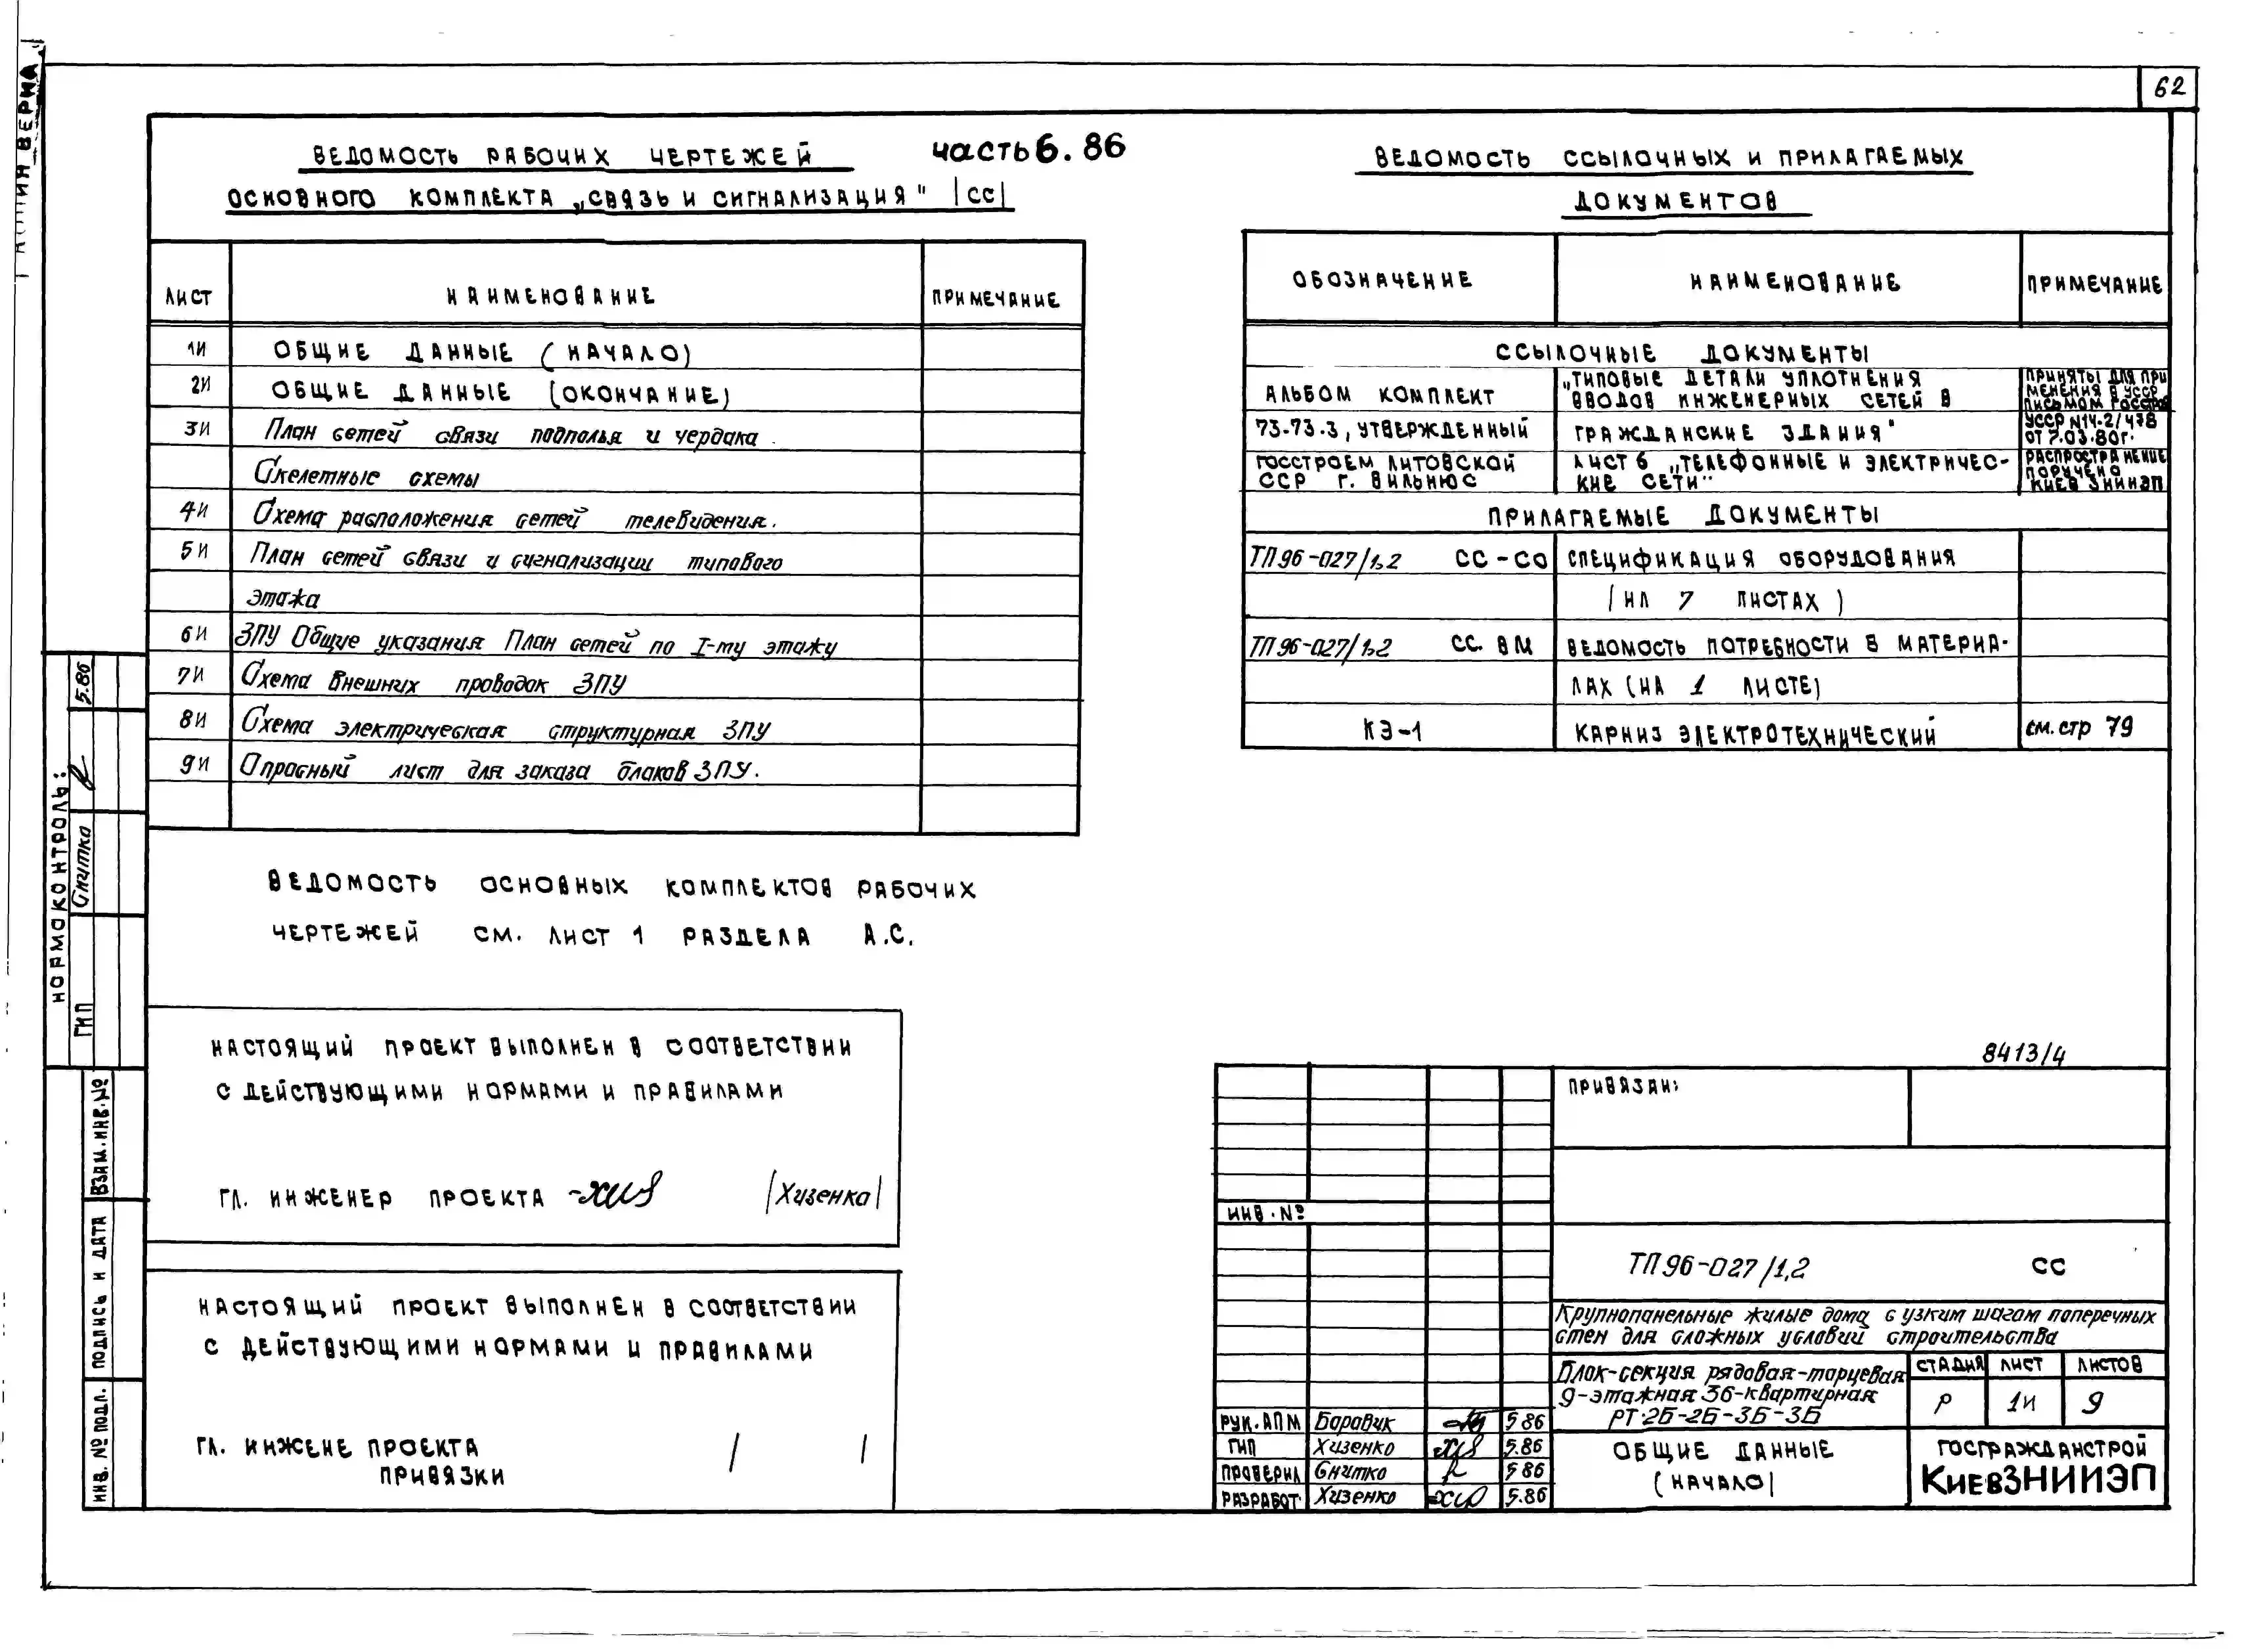 62
ВЕДОМОСТЬ РАБОЧИХ ЧЕРТЕЖЕЙ
часть 6. 86
ОСНОВНОГО КОМПЛЕКТА „СВЯЗЬ И СИГНАЛИЗАЦИЯ" |СС|
ЛИСТ НАИМЕНОВАНИЕ ПРИМЕЧАНИЕ
1И ОБЩИЕ ДАННЫЕ (НАЧАЛО)
2И ОБЩИЕ ДАННЫЕ (ОКОНЧАНИЕ)
3И План сетей связи подполья и чердака.
Скелетные схемы
4И Схема расположения сетей телевидения.
5И План сетей связи и сигнализации типового
этажа
6И ЗПУ Общие указания План сетей по I-му этажу
7И Схема внешних проводок ЗПУ
8И Схема электрическая структурная ЗПУ
9И Опросный лист для заказа блоков ЗПУ.
ВЕДОМОСТЬ ОСНОВНЫХ КОМПЛЕКТОВ РАБОЧИХ
ЧЕРТЕЖЕЙ СМ. ЛИСТ 1 РАЗДЕЛА А.С.
НАСТОЯЩИЙ ПРОЕКТ ВЫПОЛНЕН В СООТВЕТСТВИИ
С ДЕЙСТВУЮЩИМИ НОРМАМИ И ПРАВИЛАМИ
ГЛ. ИНЖЕНЕР ПРОЕКТА |Хизенко|
НАСТОЯЩИЙ ПРОЕКТ ВЫПОЛНЕН В СООТВЕТСТВИИ
С ДЕЙСТВУЮЩИМИ НОРМАМИ И ПРАВИЛАМИ
ГЛ. ИНЖЕНЕ ПРОЕКТА / /
ПРИВЯЗКИ
ВЕДОМОСТЬ ССЫЛОЧНЫХ И ПРИЛАГАЕМЫХ
ДОКУМЕНТОВ
ОБОЗНАЧЕНИЕ НАИМЕНОВАНИЕ ПРИМЕЧАНИЕ
ССЫЛОЧНЫЕ ДОКУМЕНТЫ
АЛЬБОМ КОМПЛЕКТ
73-73.3, УТВЕРЖДЕННЫЙ
ГОССТРОЕМ ЛИТОВСКОЙ
ССР Г. ВИЛЬНЮС
„ТИПОВЫЕ ДЕТАЛИ УПЛОТНЕНИЯ
ВВОДОВ ИНЖЕНЕРНЫХ СЕТЕЙ В
ГРАЖДАНСКИЕ ЗДАНИЯ"
ЛИСТ 6 „ТЕЛЕФОННЫЕ И ЭЛЕКТРИЧЕС-
КИЕ СЕТИ"
ПРИНЯТЫ ДЛЯ ПРИ
МЕНЕНИЯ В УССР
ПИСЬМОМ ГОССТРОЯ
УССР N14-2/478
ОТ 7.03.80Г.
РАСПРОСТРАНЕНИЕ
ПОРУЧЕНО
КИЕВЗНИИЭП
ПРИЛАГАЕМЫЕ ДОКУМЕНТЫ
ТП 96-027/1,2 СС-СО СПЕЦИФИКАЦИЯ ОБОРУДОВАНИЯ
(НА 7 ЛИСТАХ)
ТП 96-027/1,2 СС. ВМ ВЕДОМОСТЬ ПОТРЕБНОСТИ В МАТЕРИА-
ЛАХ (НА 1 ЛИСТЕ)
КЭ-1 КАРНИЗ ЭЛЕКТРОТЕХНИЧЕСКИЙ см. стр 79
8413/4
ПРИВЯЗАН:
ИНВ. №
ТП 96-027/1,2 СС
Крупнопанельные жилые дома с узким шагом поперечных
стен для сложных условий строительства
Блок-секция рядовая-торцевая
9-этажная 36-квартирная
РТ-2Б-2Б-3Б-3Б
СТАДИЯ ЛИСТ ЛИСТОВ
Р 1И 9
ОБЩИЕ ДАННЫЕ
(НАЧАЛО)
ГОСГРАЖДАНСТРОЙ
КиевЗНИИЭП
РУК. АПМ Боровик 5.86
ГИП Хизенко 5.86
ПРОВЕРИЛ Снитко 5.86
РАЗРАБОТ. Хизенко 5.86
НОРМОКОНТРОЛЬ:
ГИП Снитко 5.86
ВЗАМ. ИНВ. №
ПОДПИСЬ И ДАТА
ИНВ. № ПОДЛ.
ВЕРНА